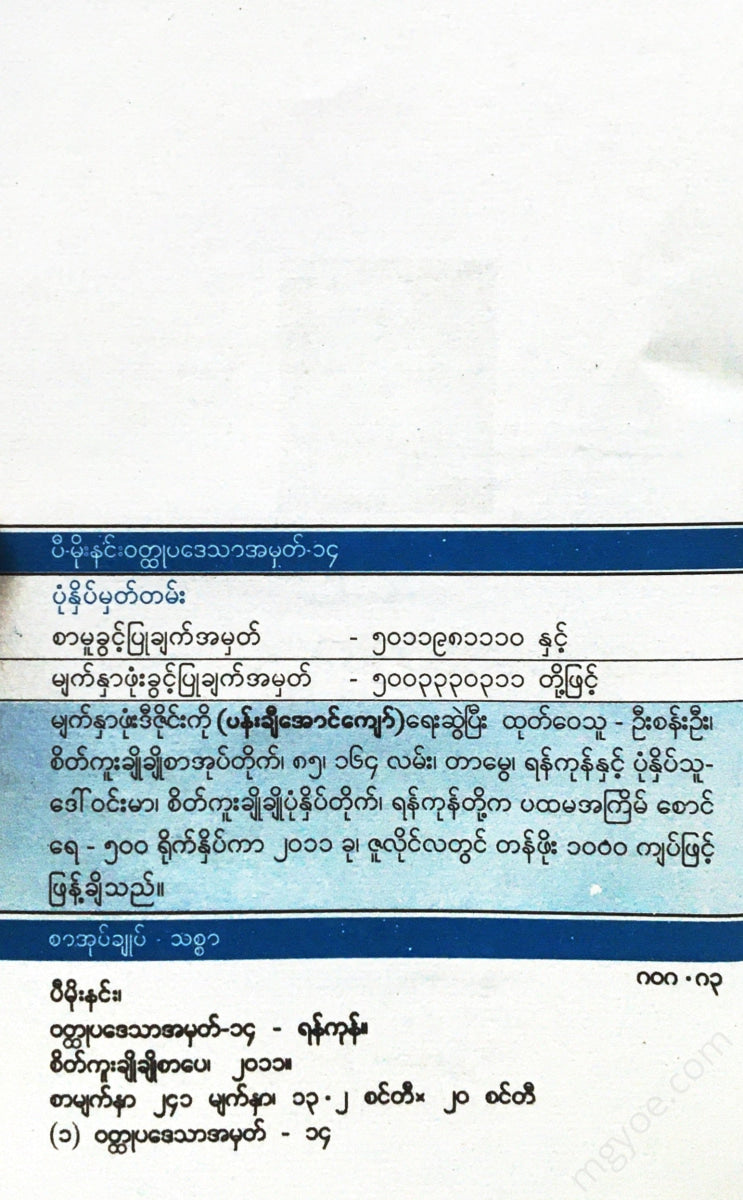 ပီ-မိုးနင်းဝတ္ထုပဒေသာအမှတ်-၁၄
ပုံနှိပ်မှတ်တမ်း
စာမူခွင့်ပြုချက်အမှတ် - ၅၀၁၁၉၈၁၁၁၀ နှင့်
မျက်နှာဖုံးခွင့်ပြုချက်အမှတ် - ၅၀၀၃၃၃၀၃၁၁ တို့ဖြင့်
မျက်နှာဖုံးဒီဇိုင်းကို (ပန်းချီအောင်ကျော်)ရေးဆွဲပြီး ထုတ်ဝေသူ - ဦးစန်းဦး၊
စိတ်ကူးချိုချိုစာအုပ်တိုက်၊ ၈၅၊ ၁၆၄ လမ်း၊ တာမွေ၊ ရန်ကုန်နှင့် ပုံနှိပ်သူ-
ဒေါ်ဝင်းမာ၊ စိတ်ကူးချိုချိုပုံနှိပ်တိုက်၊ ရန်ကုန်တို့က ပထမအကြိမ် စောင်
ရေ - ၅၀၀ ရိုက်နှိပ်ကာ ၂၀၁၁ ခု၊ ဇူလိုင်လတွင် တန်ဖိုး ၁၀၀၀ ကျပ်ဖြင့်
ဖြန့်ချိသည်။
စာအုပ်ချုပ် - သစ္စာ
၈၀၈ ·၈၃
ပီမိုးနင်း၊
ဝတ္ထုပဒေသာအမှတ်-၁၄ - ရန်ကုန်။
စိတ်ကူးချိုချိုစာပေ၊ ၂၀၁၁။
စာမျက်နှာ ၂၄၁ မျက်နှာ၊ ၁၃·၂ စင်တီ× ၂၀ စင်တီ
(၁) ဝတ္ထုပဒေသာအမှတ် - ၁၄
mgyoe.com